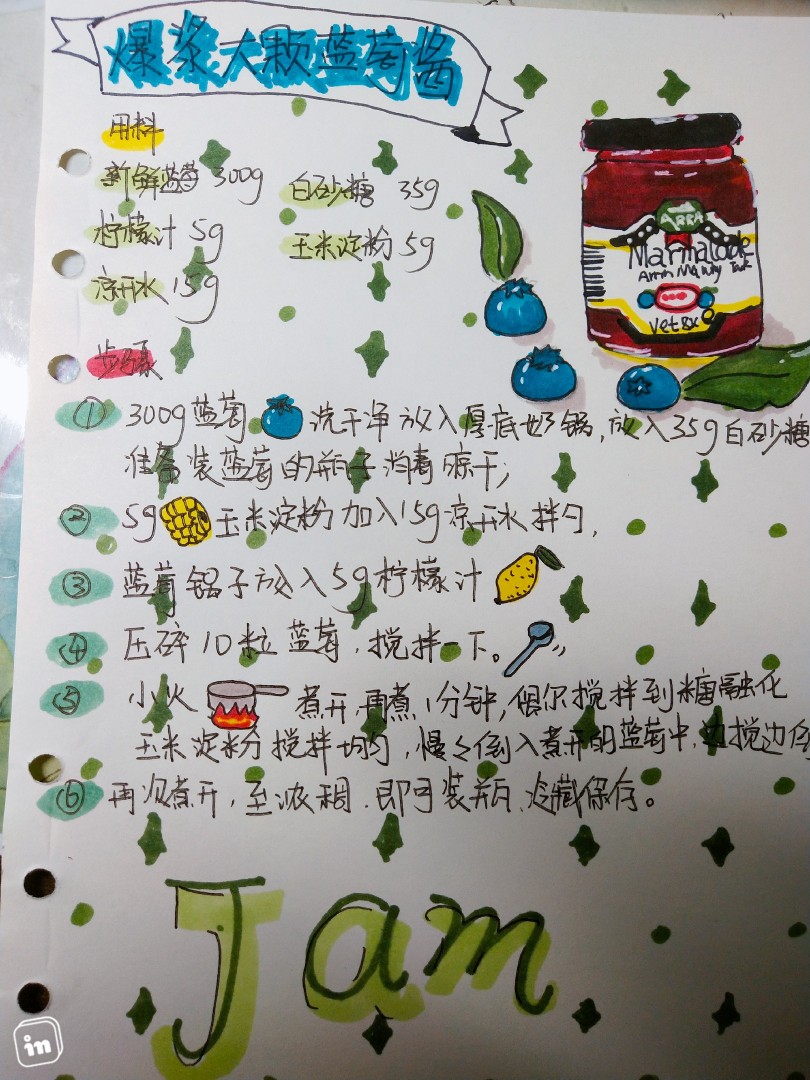 爆浆大颗蓝莓酱
用料
新鲜蓝莓 300g 白砂糖 35g
柠檬汁 5g 玉米淀粉 5g
凉开水 15g
步骤
① 300g蓝莓 洗干净放入厚底奶锅,放入35g白砂糖
准备装蓝莓的瓶子消毒晾干;
② 5g 玉米淀粉加入15g凉开水拌匀,
③ 蓝莓锅子放入5g柠檬汁
④ 压碎10粒蓝莓,搅拌一下。
⑤ 小火 煮开再煮1分钟,偶尔搅拌到糖融化
玉米淀粉搅拌均匀,慢慢倒入煮开的蓝莓中,边搅边倒
⑥ 再次煮开,至浓稠,即可装瓶、冷藏保存。
Marmalade
Vet8x
Jam
in